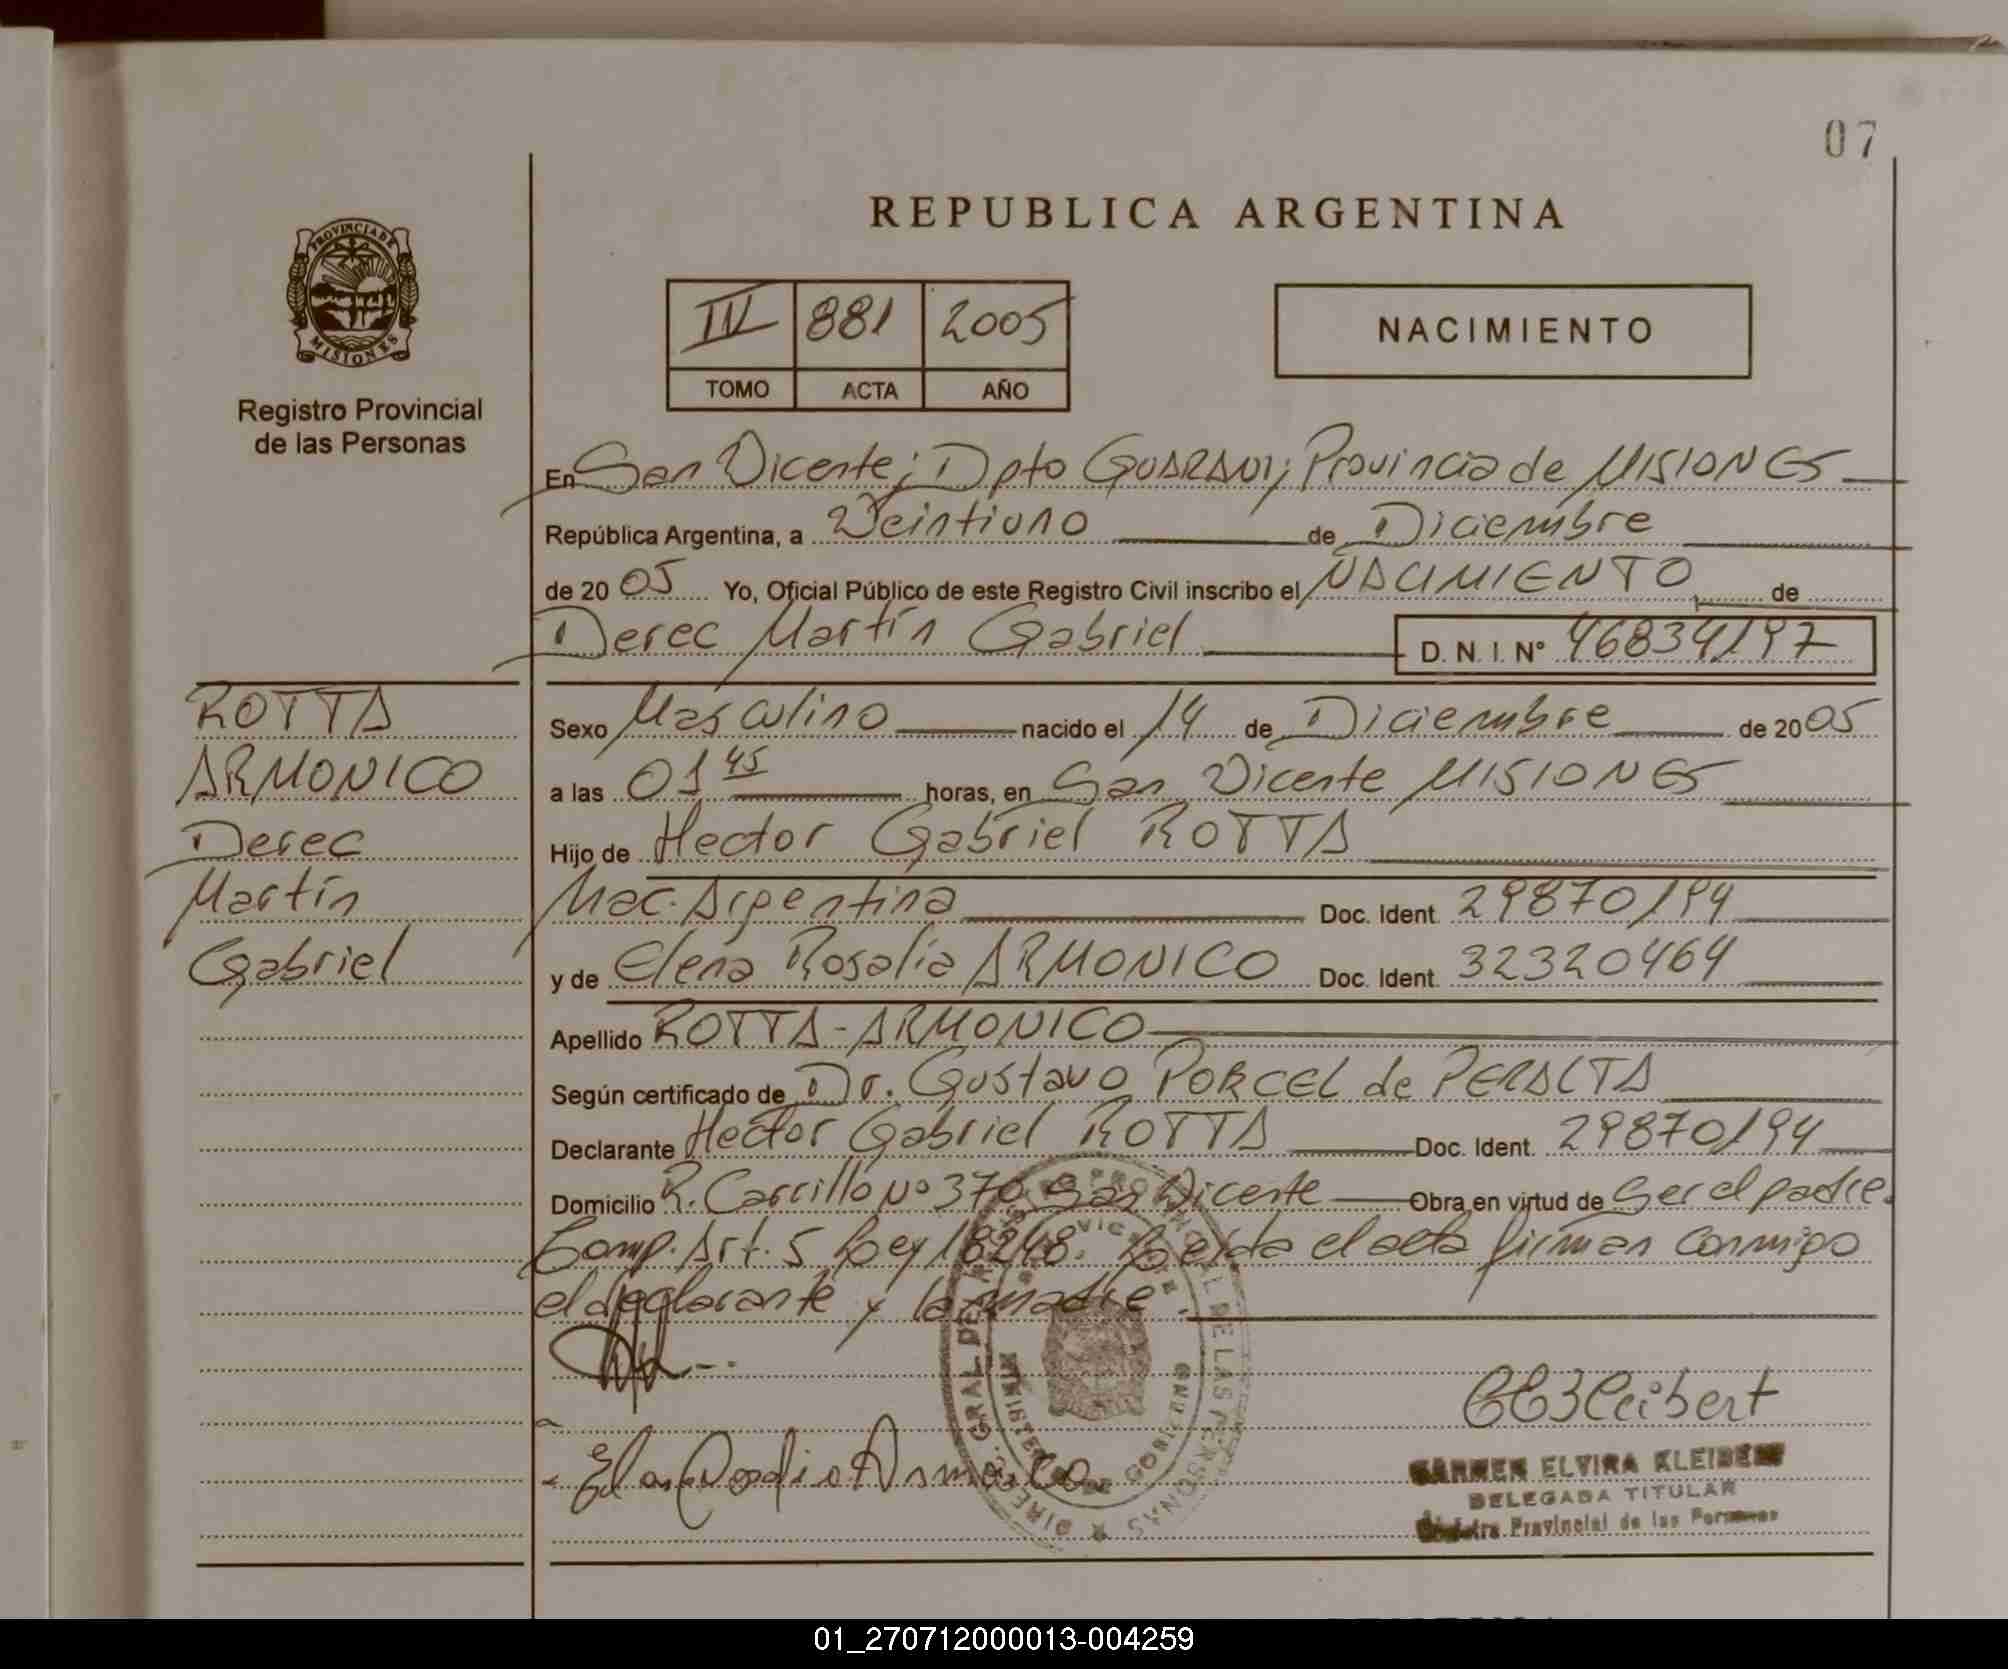 07
PROVINCIA DE
MISIONES
Registro Provincial
de las Personas
REPUBLICA ARGENTINA
IV 881 2005
TOMO ACTA AÑO
NACIMIENTO
En San Vicente; Dpto GUARANI; Provincia de MISIONES
República Argentina, a Veintiuno de Diciembre
de 20 05 Yo, Oficial Público de este Registro Civil inscribo el NACIMIENTO de
Derec Martín Gabriel D. N. I. Nº 46834197
ROTTA
ARMONICO
Derec
Martín
Gabriel
Sexo Masculino nacido el 14 de Diciembre de 20 05
a las 01 45 horas, en San Vicente MISIONES
Hijo de Hector Gabriel ROTTA
Nac. Argentina Doc. Ident. 29870194
y de Elena Rosalia ARMONICO Doc. Ident. 32320464
Apellido ROTTA-ARMONICO
Según certificado de Dr. Gustavo PORCEL de PERALTA
Declarante Hector Gabriel ROTTA Doc. Ident. 29870194
Domicilio R. Carrillo Nº 370 San Vicente Obra en virtud de Ser el padre.
Comp. Art. 5 Ley 18248. Leída el acta firman conmigo
el declarante y la madre
CEKleibert
CARMEN ELVIRA KLEIBERT
DELEGADA TITULAR
Registro Provincial de las Personas
01_270712000013-004259